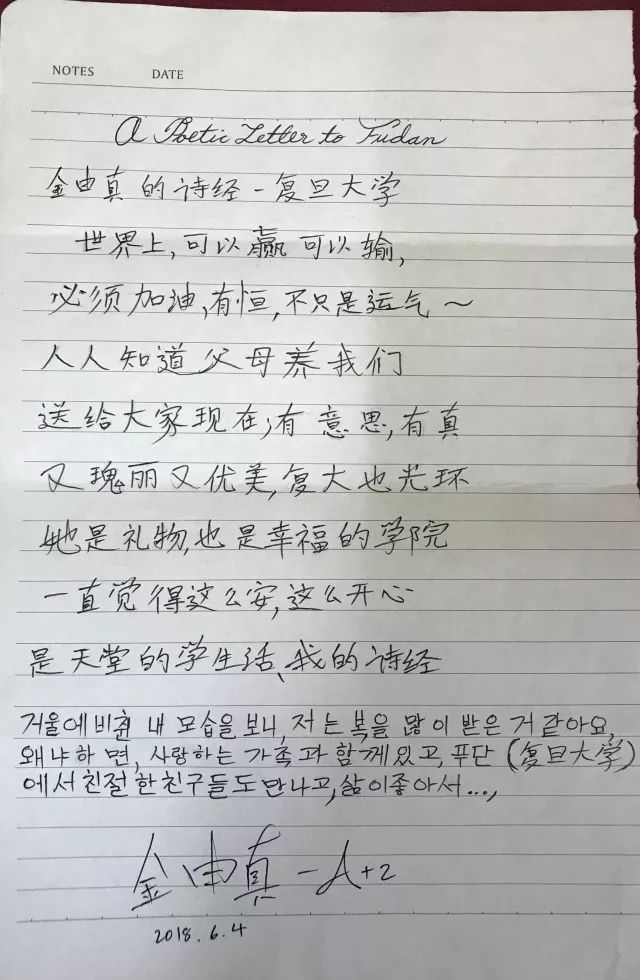 NOTES DATE
A Poetic Letter to Fudan
金由真的诗经-复旦大学
世界上,可以赢可以输,
必须加油,有恒,不只是运气~
人人知道父母养我们
送给大家现在;有意思,有真
又瑰丽又优美,复大也光环
她是礼物,也是幸福的学院
一直觉得这么安,这么开心
是天堂的学生活、我的诗经
거울에비췬 내 모습을보니, 저는 복을 많이 받은 거 같아요,
왜냐하면, 사랑하는 가족과 함께있고, 푸단 (复旦大学)
에서 친절한친구들도만나고,삶이좋아서...,
金由真-A+2
2018.6.4